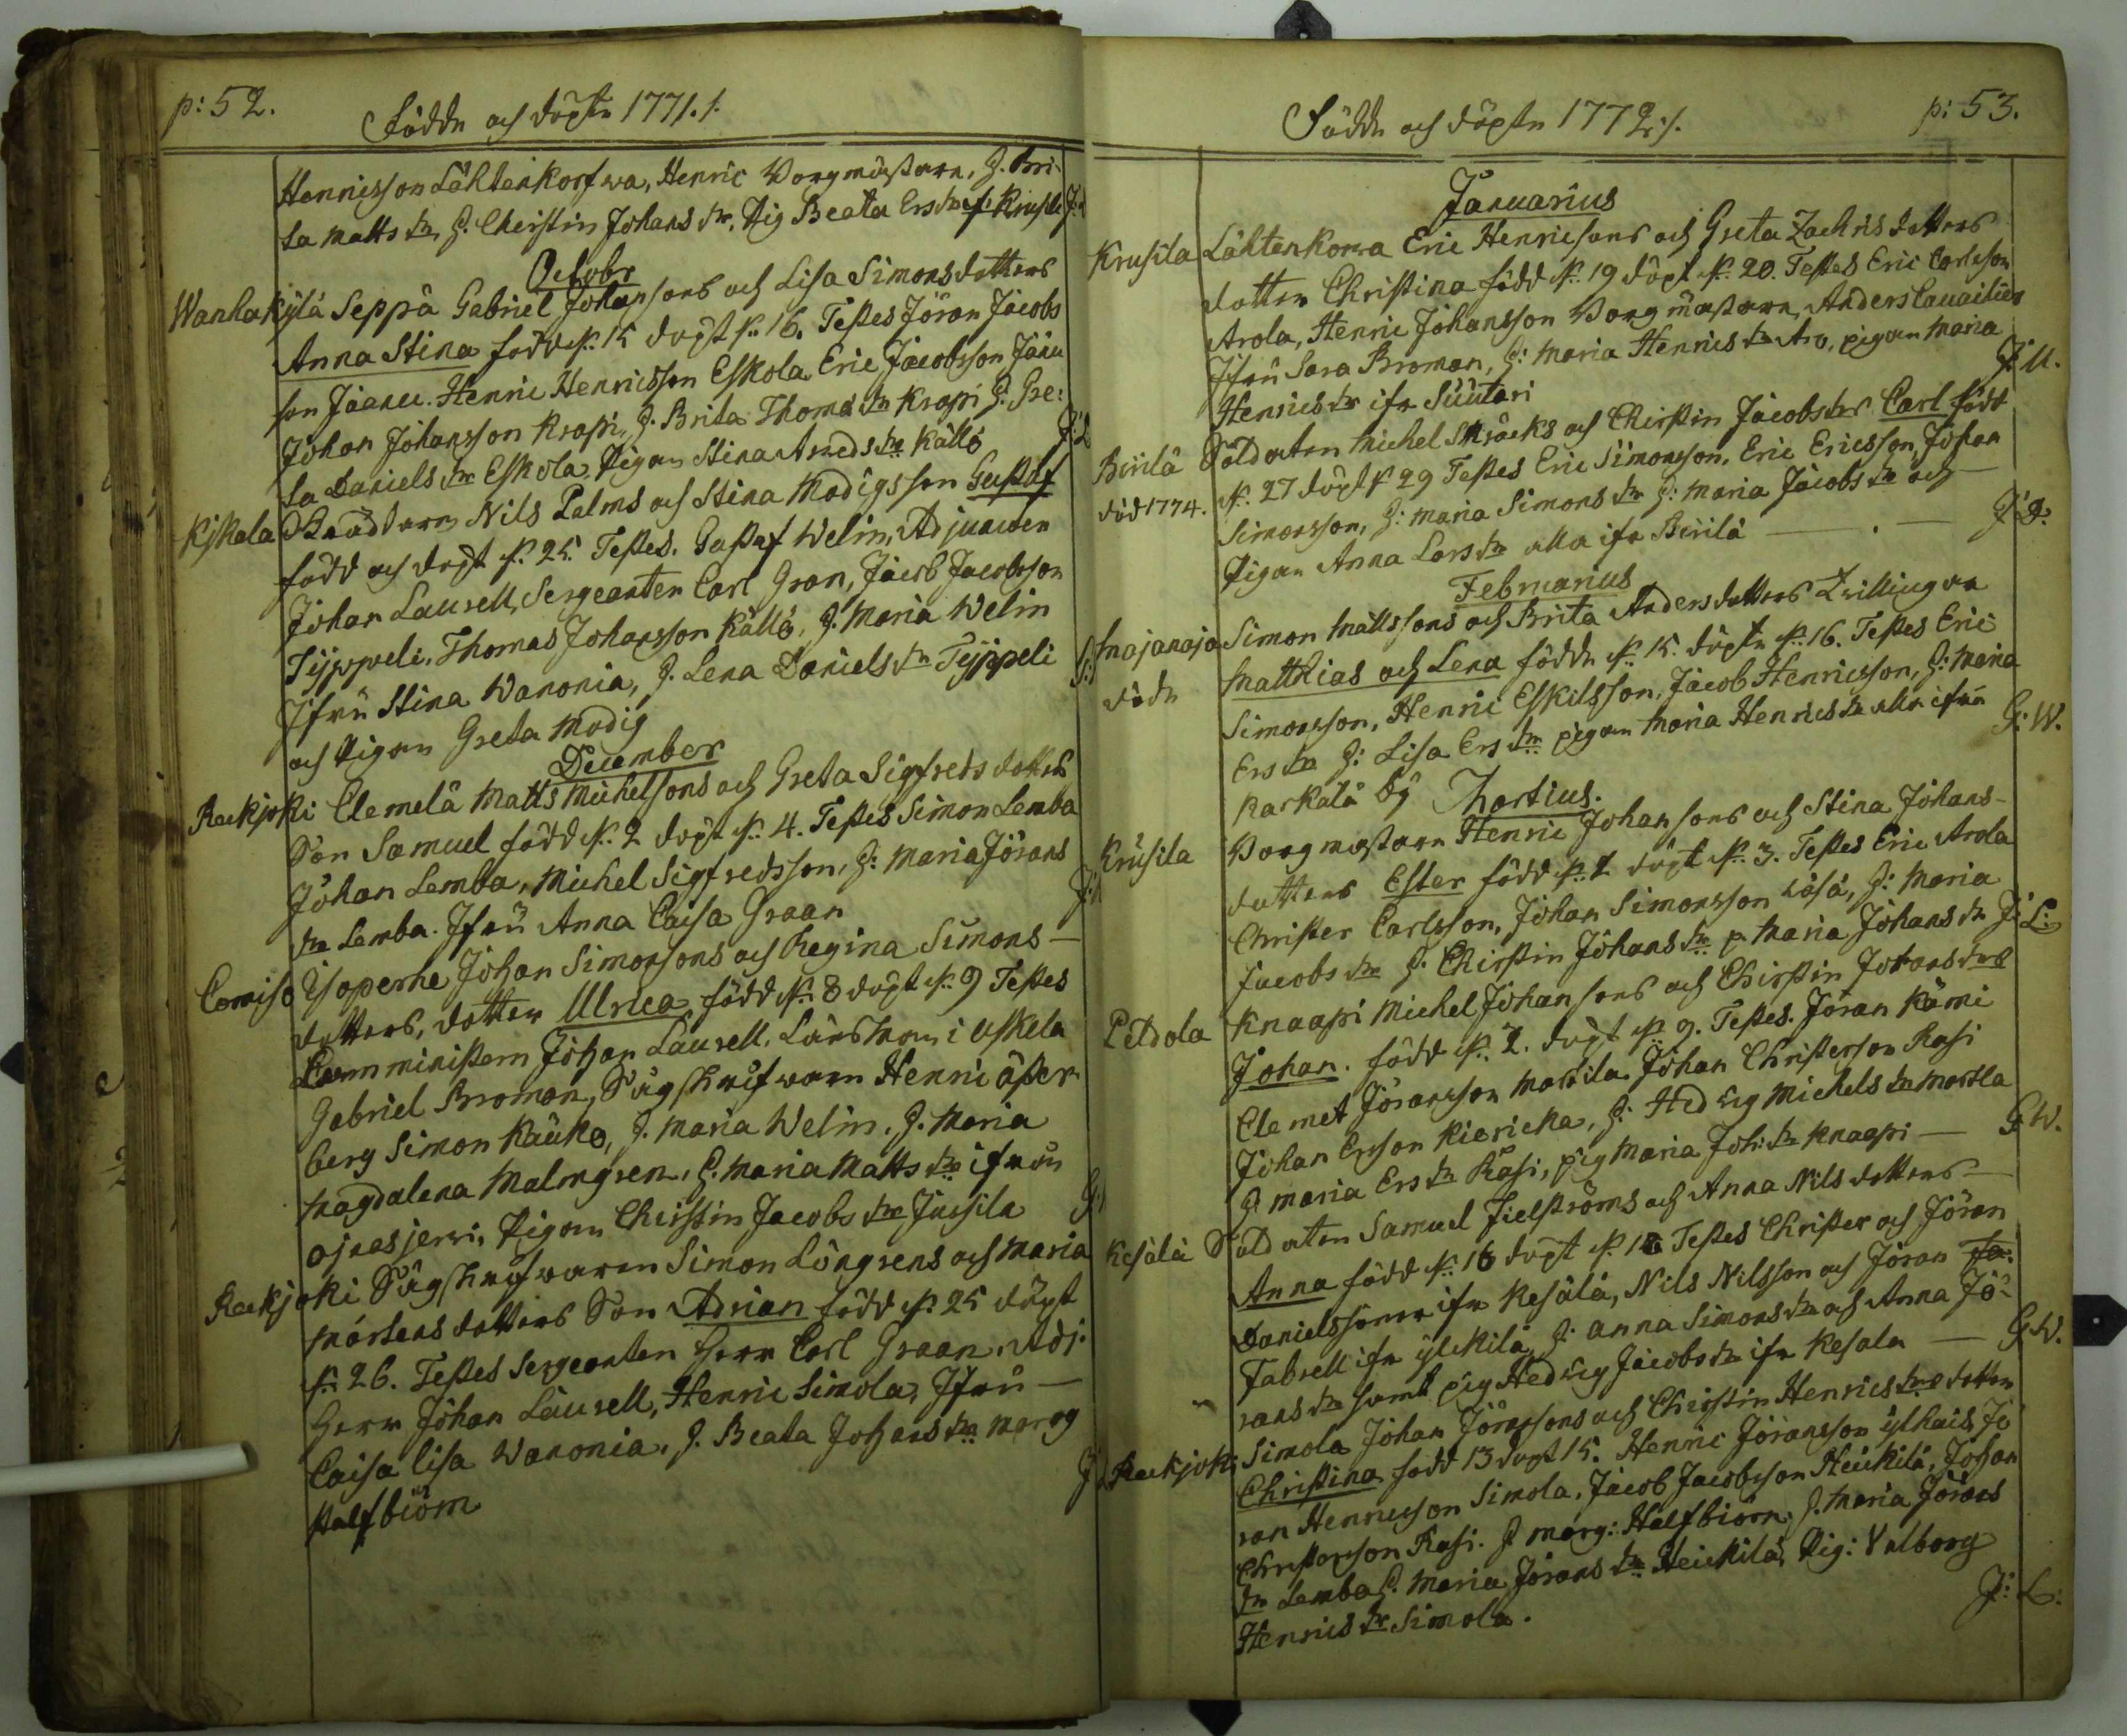 p: 52.
Födde och döpte 1771./.
Henricsson Lähtenkorfwa, Henric Vorgmästare, H. Bri-
ta Matts dr, H. Christin Johans dr, Pig Beata Ers dr if. Krusila
Octobr
Wanhakylä Seppä Gabriel Johansons och Lisa Simonsdotters
Anna Stina född d. 15 döpt d. 16. Testes Jöran Jacobs
son Jaanu. Henric Henricsson Eskola Eric Jacobsson Jänu
Johan Johansson Krapi, H. Brita Thoma dr Krapi H. Gre:
ta Daniels dr Eskola, Pigan Stina Anreds dr Källö J: L
Kiskala Nils Palms och Stina Modigs son Gustaf
född och döpt d. 25. Testes. Gustaf Welin, Adjuncten
Johan Laurell, Sergeanten Carl Gran, Jacob Jacobsson
Tyyppeli, Thomas Johansson Källö, H. Maria Welin
Jfru Stina Wanonia, H. Lena Daniels dr Tyyppeli
och Pigan Greta Modig
December
Raekjoki Clemelä Matts Michelsons och Greta Sigfredsdotters
Son Samuel född d. 2 döpt d. 4. Testes Simon Lemba
Johan Lemba, Michel Sigfredsson, H: Maria Jörans
dr Lemba. Jfru Anna Caisa Graan
Comiso Isoperhe Johan Simonsons och Regina Simons-
dotters, dotter Ulrica född d. 8 döpt d. 9 Testes
Comministern Johan Laurell, Länsman i Uskela
Gabriel Broman, Sågskrifwaren Henric Åster
berg Simon Kauko, H. Maria Welin. H. Maria
Magdalena Malmgren, H. Maria Matts dr ifrån
Ojansjerwi, Pigan Christin Jacobs dr Jussila
Raekjoki Sågskrifwaren Simon Löngrens och Maria
Mårtens dotters Son Adrian född d. 25 döpt
d. 26. Testes Sergeanten Herr Carl Graan, Adj.
Herr Johan Laurell, Henric Simola, Jfru
Caisa Lisa Wanonia, H. Beata Johans dr Marg
Halfbiörn
Födde och döpte 1772./.
p: 53.
Januarius
Krusila Lähtenkorwa Eric Henricsons och Greta Zachris dotters
dotter Christina född d. 19 döpt d. 20. Testes Eric Carlsson
Arola, Henric Johansson Vorgmästare, Anders Cauailier
Jfru Sara Broman, H: Maria Henrics dr Aro, pigan Maria
Henrics dr ifr Suutari J: M.
Biirilä Soldaten Michel Skräcks och Christin Jacobs drs Carl född
död 1774. d. 27 döpt d 29 Testes Eric Simonsson, Eric Ericsson, Johan
Simonsson, H: Maria Simons dr H: Maria Jacobs dr och
Pigan Anna Lars dr alla ifr Biirilä J: L.
Februarius
Majanoja Simon Mattssons och Brita Andersdotters Twillingar
döde Matthias och Lena födde d. 15. döpte d. 16. Testes Eric
Simonsson, Henric Eskilsson, Jacob Henricsson, H: Maria
Ers dr H: Lisa Ers dr pigan Maria Henrics dr alla ifrån
Karkala By G: W.
Martius.
Krusila Vorgmästare Henric Johansons och Stina Johans-
dotters Ester född d. 1 döpt d. 3. Testes Eric Arola
Christer Carlsson, Johan Simonsson Läsä, H: Maria
Jacobs dr H: Christin Johans dr p. Maria Johans dr J: L:
Peldola Knaapi Michel Johansons och Christin Johans drs
Johan. född d. 2. döpt d. 9. Testes. Jöran Kärni
Clemet Jöransson Marttila Johan Christerson Rasi
Johan Ersson Kiericka, H: Hedwig Michels dr Martla
H: Maria Ers dr Rasi, pig Maria Joh: dr Knaapi G W.
Kesälä Soldaten Samuel Fielströms och Anna Nils dotters
Anna född d. 16 döpt d. 18 Testes Christer och Jöran
Danielssöner ifr Kesälä, Nils Nilsson och Jöran
Fabrell ifr ylikilä, H: Anna Simons dr och Anna Jö-
rans dr samt pig Hedwig Jacobs dr ifr Kesala G W.
Raekjoki Simola Johan Jöranssons och Christin Henrics drs dotter
Christina född 13 döpt 15. Henric Jöransson ylhais, Jö
ran Henricsson Simola, Jacob Jacobsson Heickilä, Johan
Christersson Rasi. H Marg: Halfbiörn, H. Maria Jörans
dr Lemba H. Maria Jörans dr Heickilä, Pig: Valborg
Henrics dr Simola. J: L: